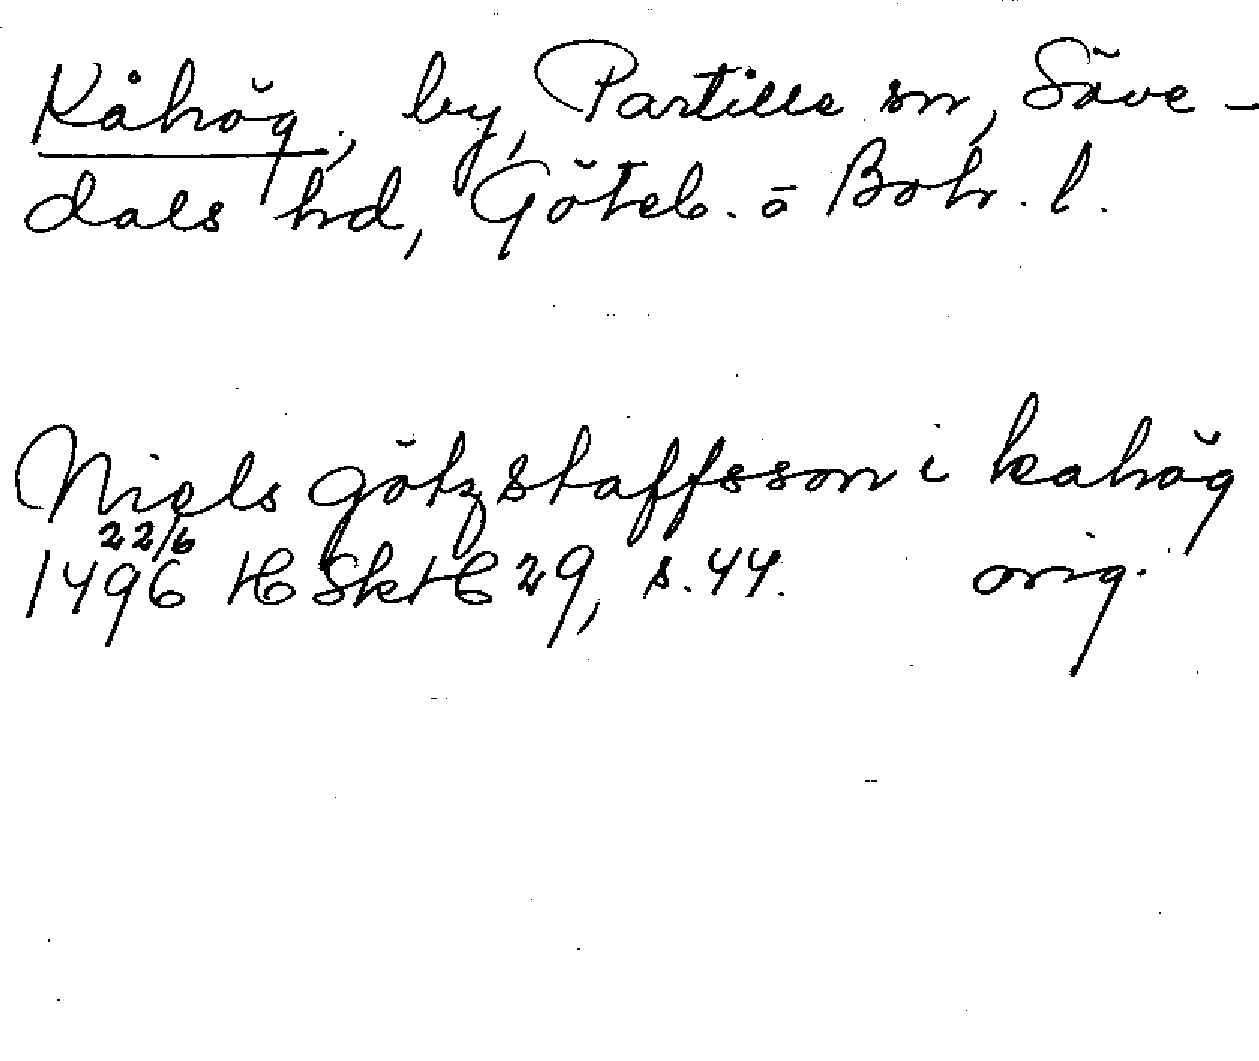 Kåhög, by, Partille sn, Säve-
dals hd, Göteb. o Boh. l.
Niels götzstaffsson i kahög
22/6
1496 HSkH 29, s. 44. orig.